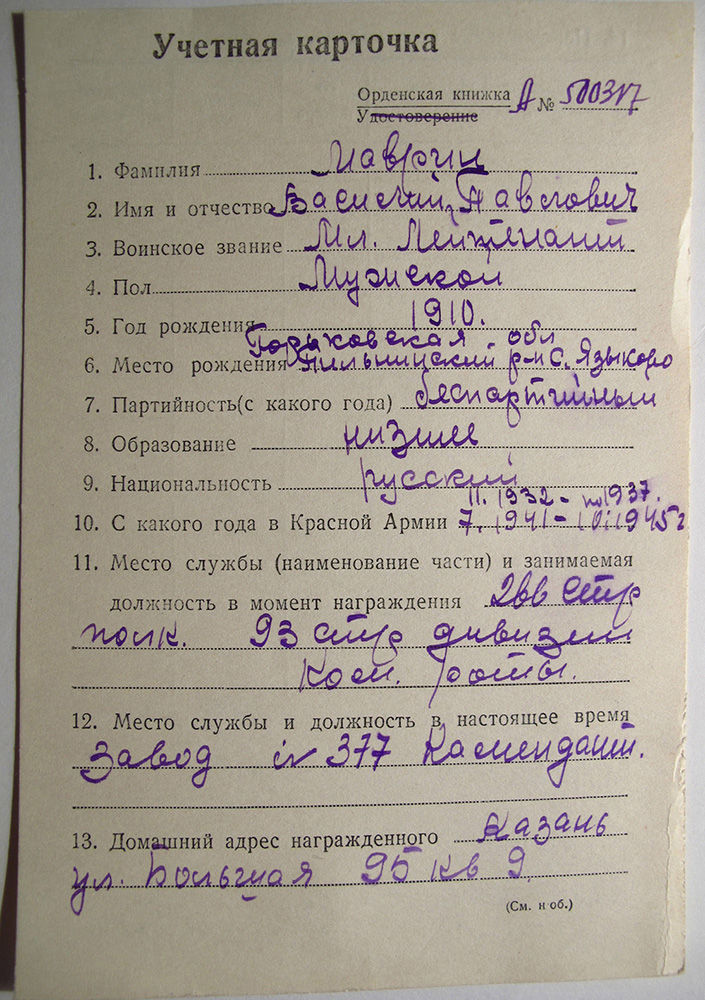 Учетная карточка
Орденская книжка А № 500317
Удостоверение
1. Фамилия Маврин
2. Имя и отчество Василий Павлович
3. Воинское звание Мл. Лейтенант
4. Пол Мужской
5. Год рождения 1910.
Горьковская обл
6. Место рождения Пильнинский р-н с. Языково
7. Партийность(с какого года) беспартийный
8. Образование низшее
9. Национальность русский
11. 1932 - по 1937.
10. С какого года в Красной Армии 7. 1941 - 10. 1945 г
11. Место службы (наименование части) и занимаемая
должность в момент награждения 266 стр
полк. 93 стр дивизии
Ком. роты.
12. Место службы и должность в настоящее время
Завод № 377 Камендант.
13. Домашний адрес награжденного Казань
ул. Большая 95 кв 9.
(См. н об.)